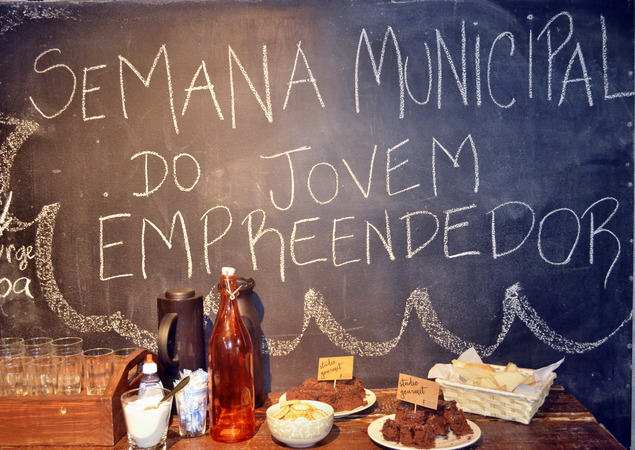 SEMANA MUNICIPAL
DO JOVEM
EMPREENDEDOR
studio
gourmet
studio
gourmet